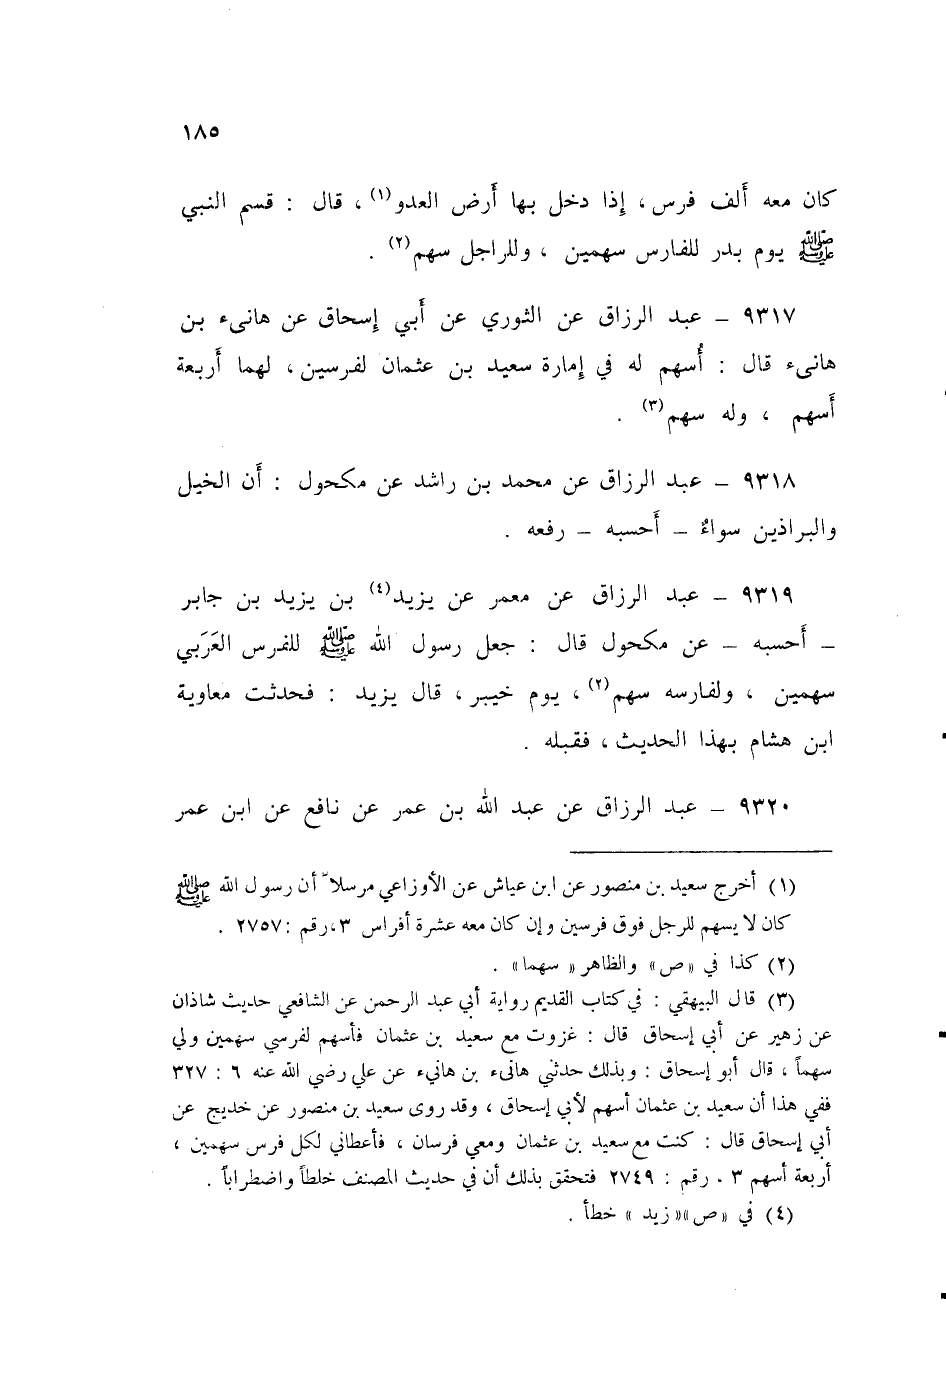 ١٨٥
كان معه أَلف فرس، إِذا دخل بها أَرض العدو(١)، قال : قسم النبي
ﷺ يوم بدر للفارس سهمين ، وللراجل سهم(٢) .
٩٣١٧ – عبد الرزاق عن الثوري عن أَبي إِسحاق عن هانىء بن
هانىء قال : أُسهم له في إِمارة سعيد بن عثمان لفرسين، لهما أَربعة
أَسهم ، وله سهم(٣) .
٩٣١٨ – عبد الرزاق عن محمد بن راشد عن مكحول : أَن الخيل
والبراذين سواءٌ – أَحسبه – رفعه .
٩٣١٩ – عبد الرزاق عن معمر عن يزيد(٤) بن يزيد بن جابر
– أَحسبه – عن مكحول قال : جعل رسول الله ﷺ للفرس العَرَبي
سهمين ، ولفارسه سهم(٢)، يوم خيبر، قال يزيد : فحدثت معاوية
ابن هشام بهذا الحديث، فقبله .
٩٣٢٠ – عبد الرزاق عن عبد الله بن عمر عن نافع عن ابن عمر
(١) أخرج سعيد بن منصور عن ابن عياش عن الأوزاعي مرسلاً أن رسول الله ﷺ
كان لا يسهم للرجل فوق فرسين وإن كان معه عشرة أفراس ٣، رقم : ٢٧٥٧ .
(٢) كذا في «ص» والظاهر « سهما» .
(٣) قال البيهقي : في كتاب القديم رواية أبي عبد الرحمن عن الشافعي حديث شاذان
عن زهير عن أبي إسحاق قال : غزوت مع سعيد بن عثمان فأسهم لفرسي سهمين ولي
سهماً ، قال أبو إسحاق : وبذلك حدثني هانىء بن هانيء عن علي رضي الله عنه ٦ : ٣٢٧
ففي هذا أن سعيد بن عثمان أسهم لأبي إسحاق ، وقد روى سعيد بن منصور عن خديج عن
أبي إسحاق قال : كنت مع سعيد بن عثمان ومعي فرسان ، فأعطاني لكل فرس سهمين ،
أربعة أسهم ٣ . رقم : ٢٧٤٩ فتحقق بذلك أن في حديث المصنف خلطاً واضطراباً .
(٤) في «ص»« زيد » خطأ .